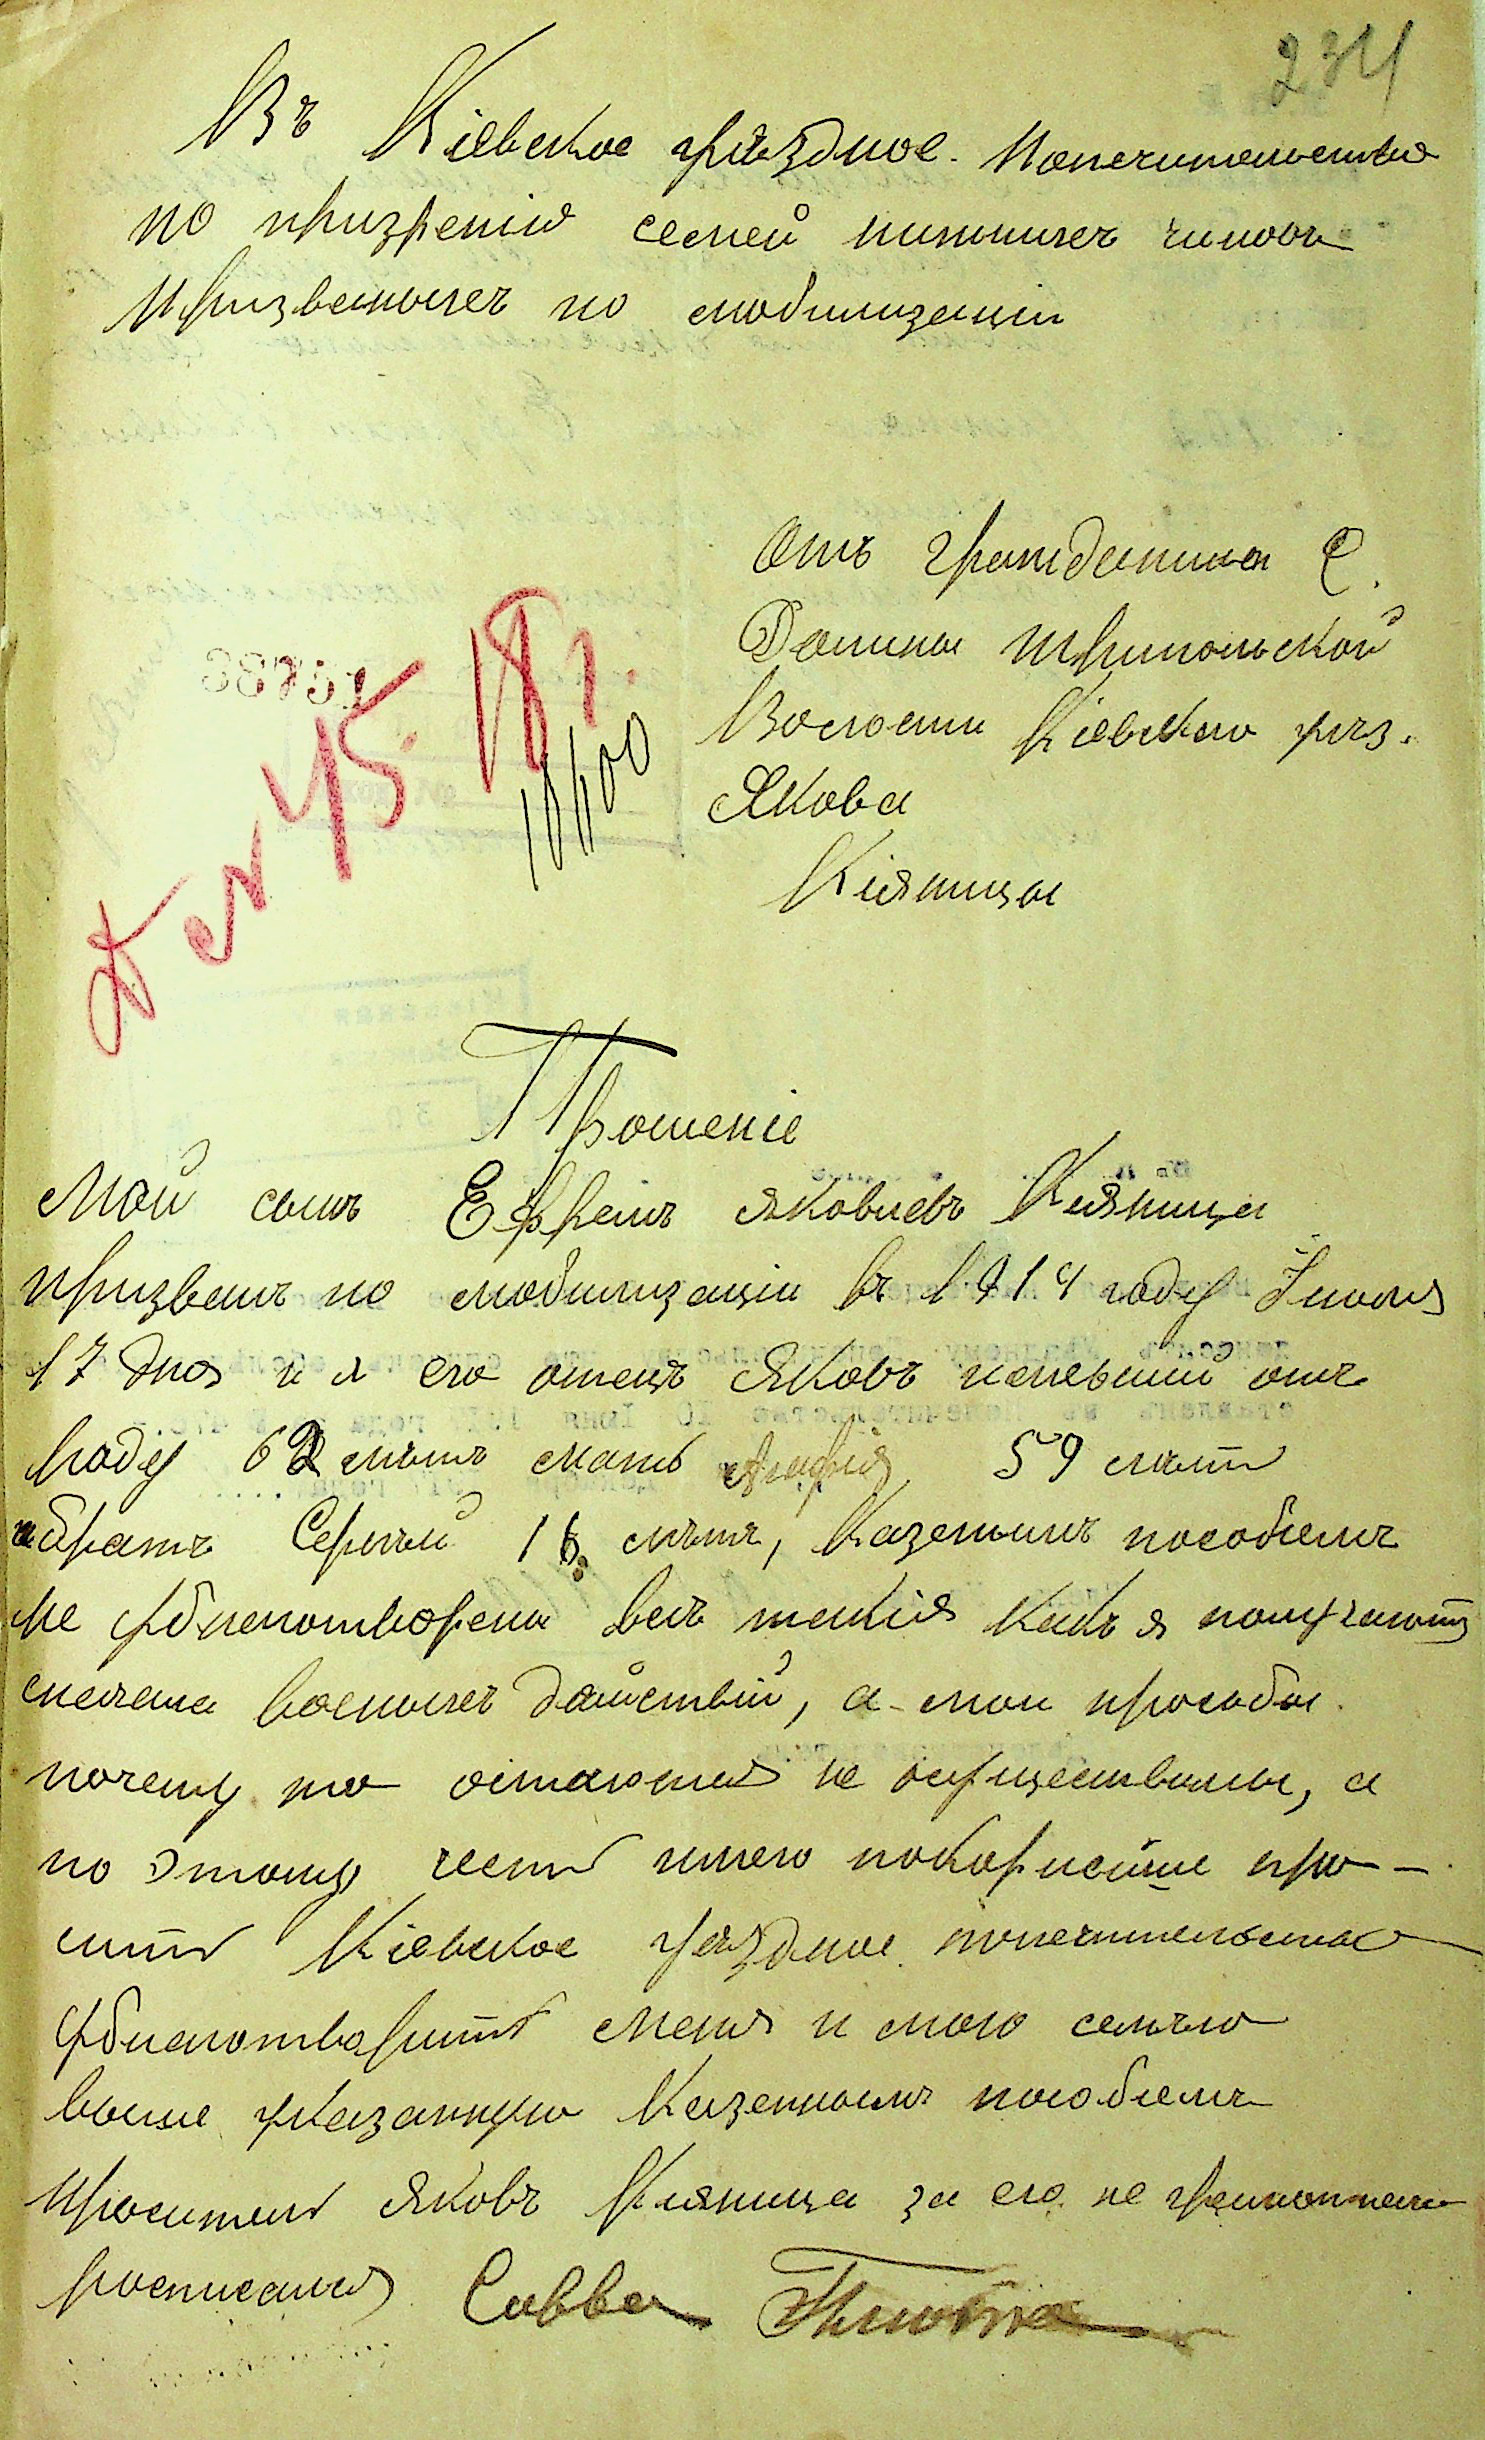 234
Въ Кіевское уѣздное Попечительство
по призренію семей нижнихъ чиновъ
призванныхъ по мобилизаціи
Отъ гражданина С.
Долины Трипольской
Волости Кіевского уез.
Якова
Кіяницы
38751
45 18 г.
10400
Прошеніе
Мой сынъ Ефремъ Яковлевъ Кияница
призванъ по мобилизаціи въ 1914 году Июля
17 дня и я его отецъ Яковъ имевший отъ
роду 62 летъ мать Агафия 59 летъ
и братъ Сергей 16 летъ, Казенымъ пособиемъ
не удвлетворены все такія какъ я получаютъ
сначала военныхъ дейстьвій, а мои просьбы
почему то остаются не осуществлены, а
по этому честь имею покорнейше про-
сить Кіевское уездное попечительство
удвлетварить меня и мою семью
выше указанную Казеннымъ пособиемъ
проситель Яковъ Кияница за его не грамотнаго
росписался Савва